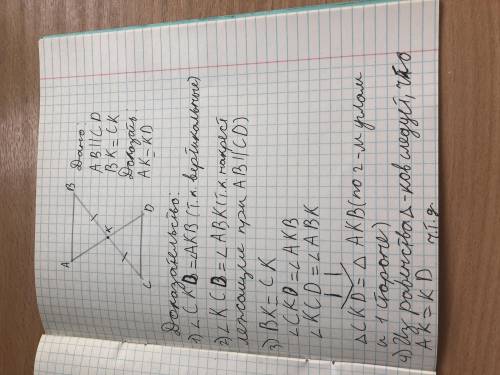 A
B
K
C
D
Дано:
AB||CD
BK=CK
Доказать:
AK=KD
Доказательство:
1) ∠CKD=∠AKB (т.к. вертикальные)
2) ∠KCD=∠ABK (т.к. накрест
лежащие при AB||CD)
3) BK=CK
∠CKD=∠AKB
∠KCD=∠ABK
△CKD=△AKB (по 2-м углам
и 1 стороне)
4) Из равенства △-ков следует, что
AK=KD ч.т.д.